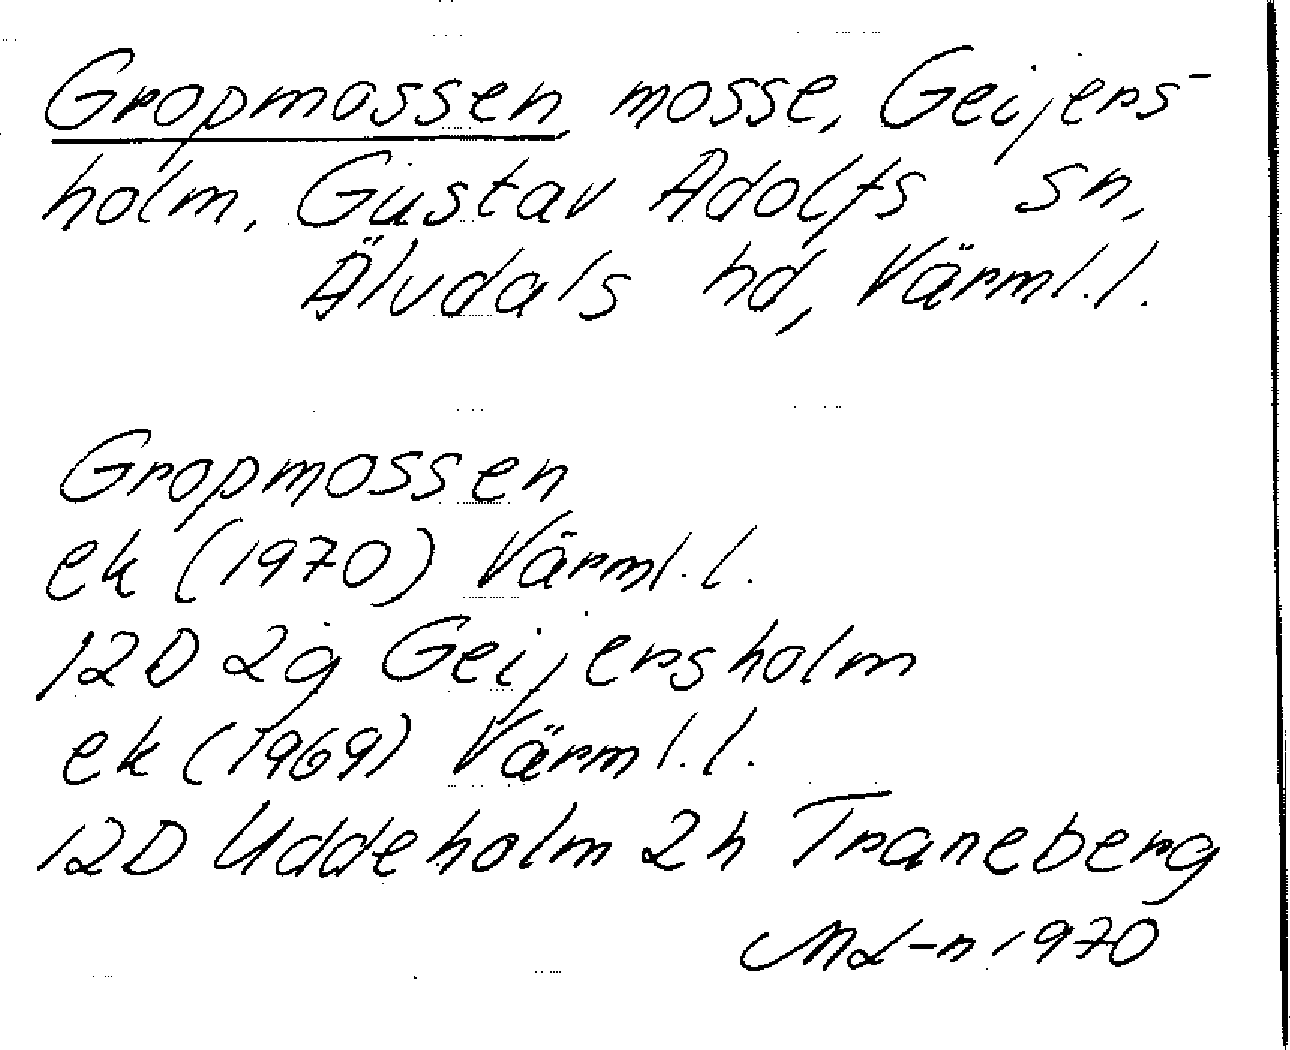 Gropmossen, mosse, Geijers-
holm, Gustav Adolfs sn,
Älvdals hd, Värml.l.
Gropmossen
ek (1970) Värml.l.
12D 2g Geijersholm
ek (1969) Värml.l.
12D Uddeholm 2h Traneberg
ML-n 1970